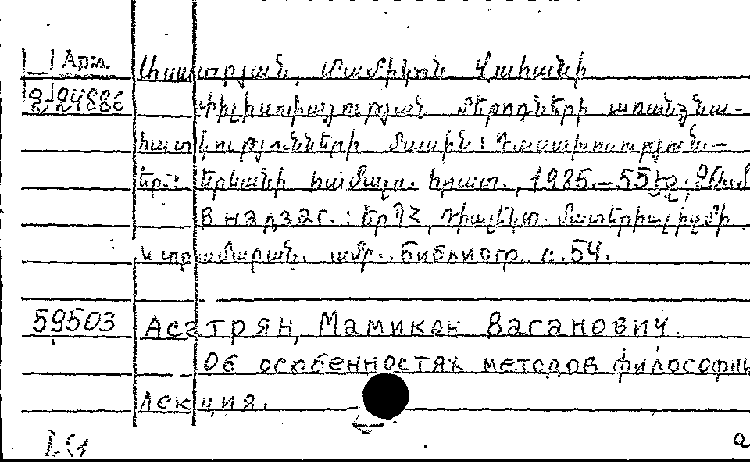 Арм.
Ասատրյան, Մամիկոն Վահանի
2-24886
Փիլիսոփայության մեթոդների առանձնա-
հատկությունների մասին: Դասախոսություն-
ներ: Երևանի համալս. հրատ., 1985.—55 էջ;
В надзаг.: ԵրՊՀ, Դիալեկտ. մատերիալիզմի
ամբ. Библиогр. с.54.
59503 Асатрян, Мамикон Ваганович.
Об особенностях методов философии
лекция.